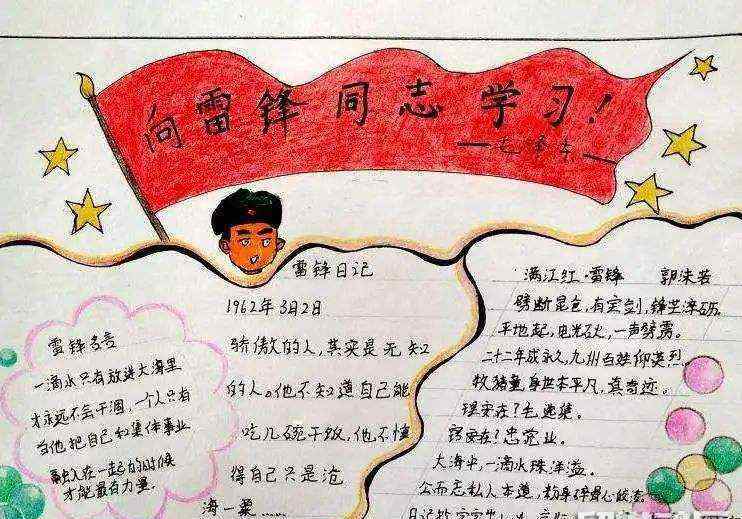 向雷锋同志学习!
——毛泽东
雷锋名言
一滴水只有放进大海里
才永远不会干涸,一个人只有
当他把自己和集体事业
融入在一起的时候
才能最有力量。
雷锋日记
1962年3月2日
骄傲的人,其实是无知
的人。他不知道自己能
吃几碗干饭,他不懂
得自己只是沧
海一粟……
满江红·雷锋 郭沫若
劈断昆仑,有宝剑,锋芒淬砺。
平地起,电光石火,一声霹雳。
二十二年成永久,九州百姓仰英烈。
牧猪童,身世本平凡,真奇迹。
现实在?毛选集。
窍实在?忠党业。
大海中,一滴水珠洋溢。
公而忘私人本道,粉身碎骨心皎
日记数